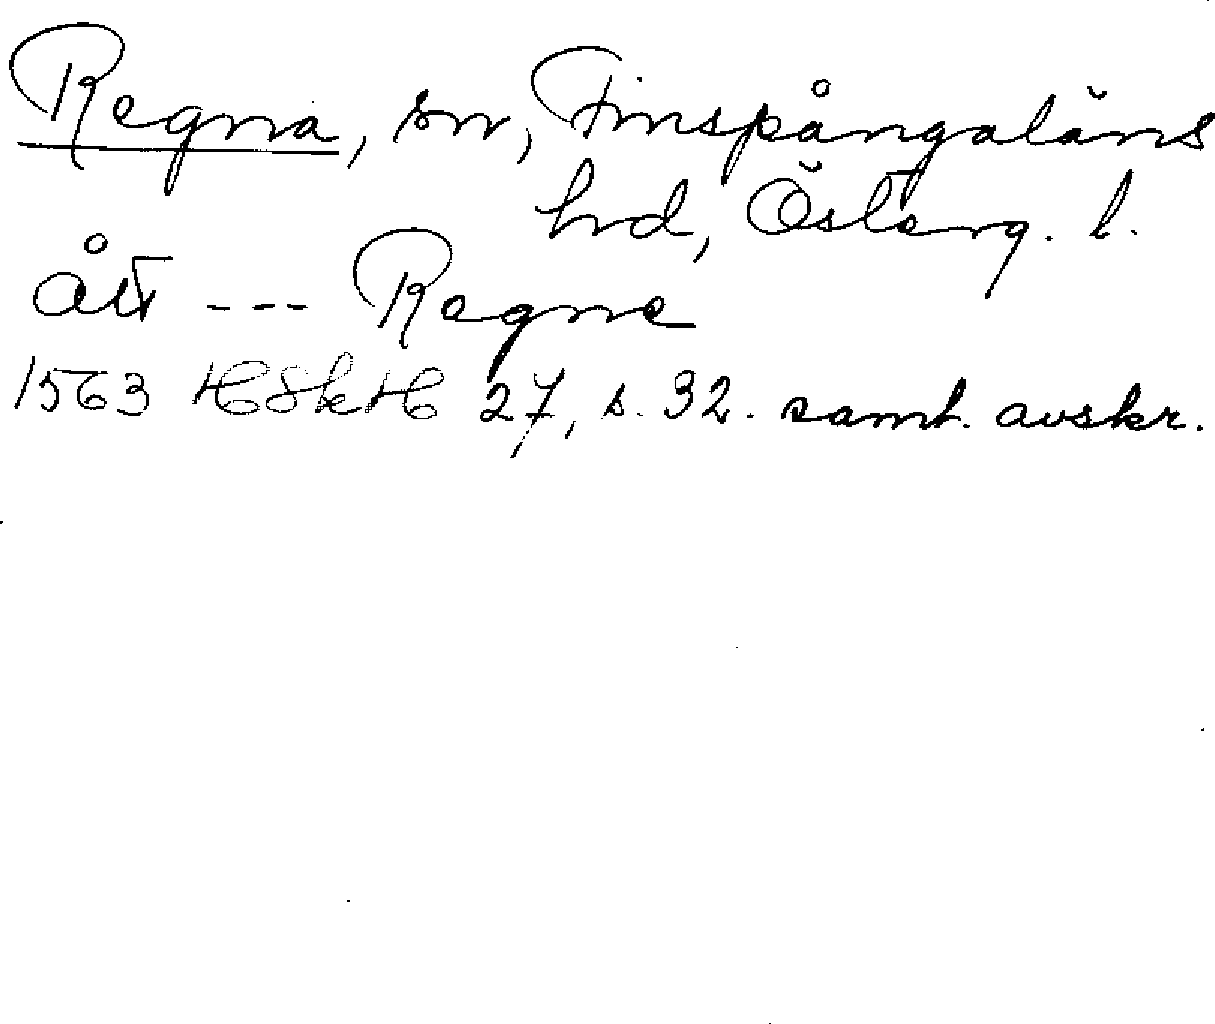 Regna, sn, Finspångaläns
hd, Österg. l.
ått --- Regne
1563 HSkH 27, s. 32. samt. avskr.